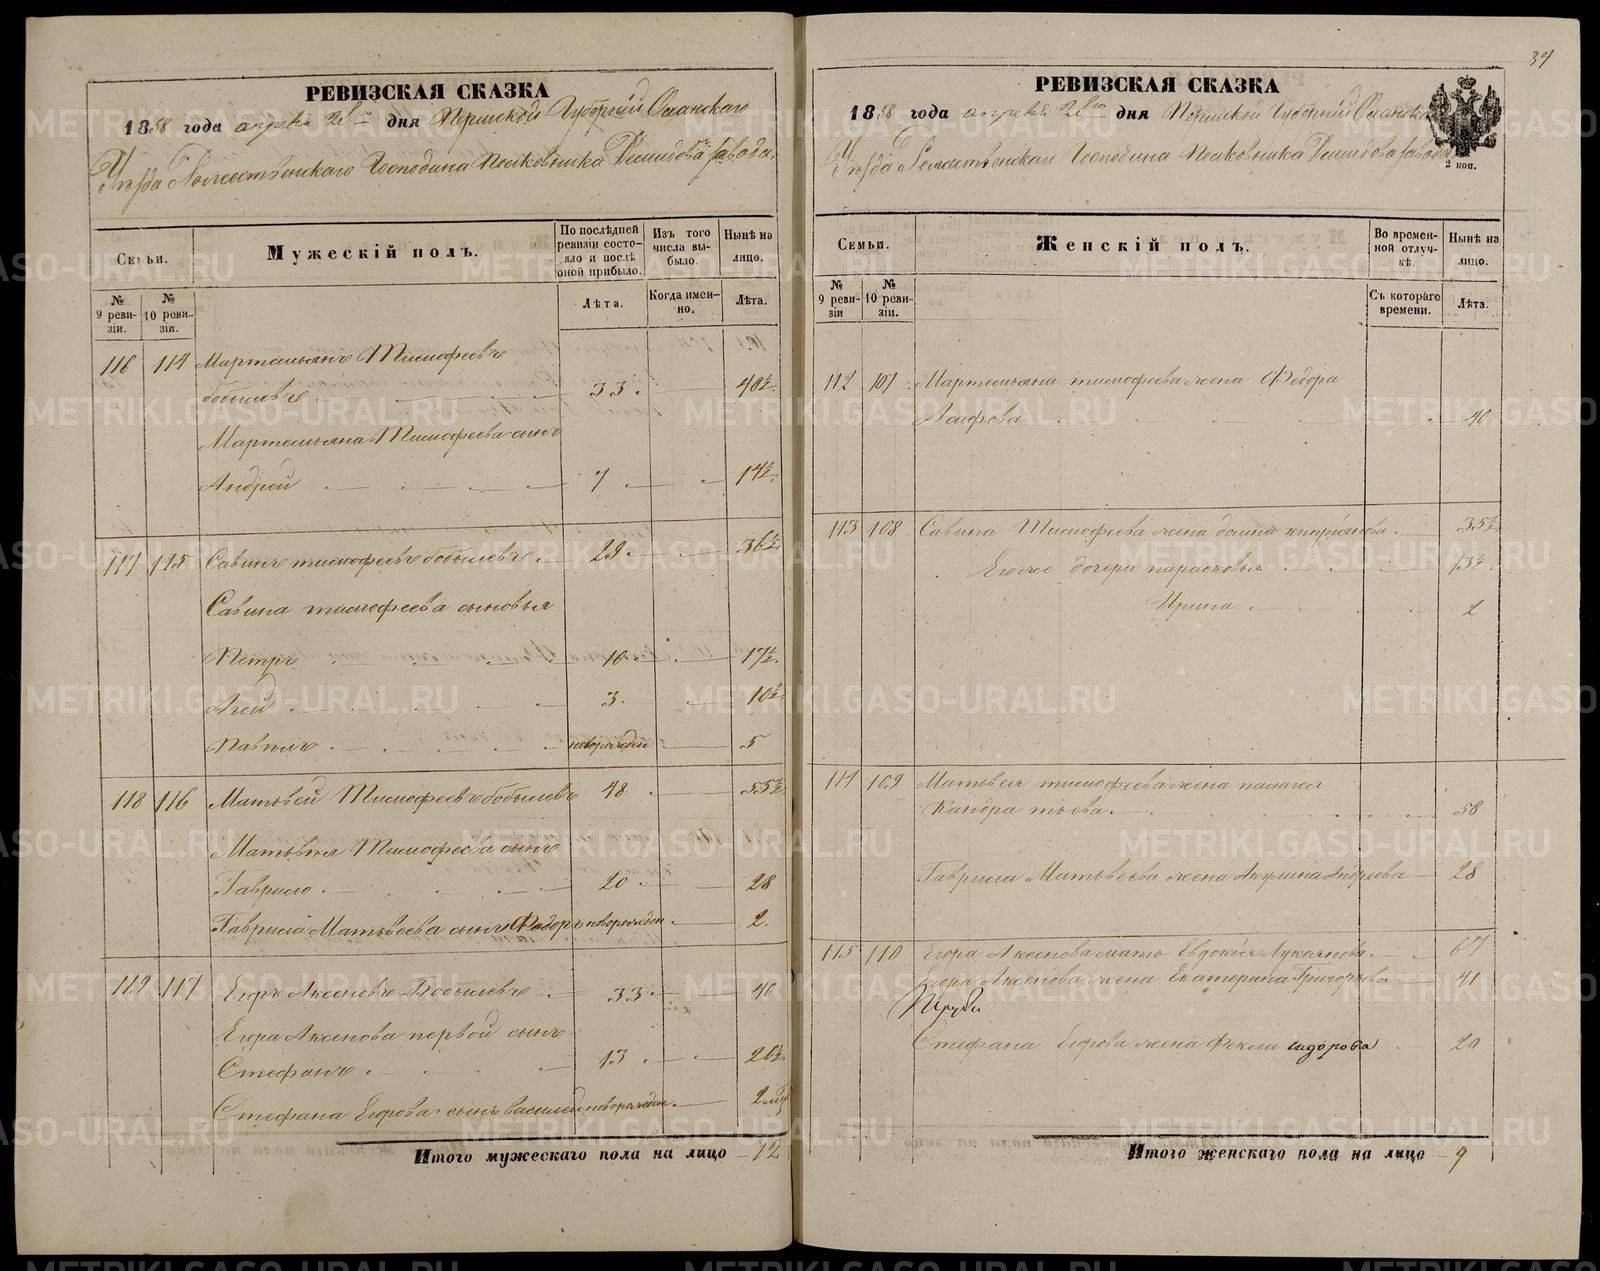 РЕВИЗСКАЯ СКАЗКА
1858 года апреля дня Пермской Губерніи Оханскаго
Уѣзда Рождественскаго Господина Полковника Демидова завода.
Семьи.
Мужескій полъ.
По послѣдней ревизіи состояло и послѣ оной прибыло.
Изъ того числа выбыло.
Нынѣ на лицо.
№ 9 ревизіи.
№ 10 ревизіи.
Лѣта.
Когда именно.
Лѣта.
116 114 Мартемьянъ Тимофеевъ
бобылевъ 33. 40½
Мартемьяна Тимофеева сынъ
Андрей 7 14½
117 115 Савинъ тимофеевъ бобылевъ 29 36½
Савина тимофеева сыновья
Петръ 10 17½
Агей 3. 10½
Павелъ новорожден 5
118 116 Матвей Тимофеевъ бобылевъ 48 55½
Матьвея Тимофеева сынъ
Гаврило 20 28
Гаврила Матьвеева сынъ Федоръ новорожден 2.
119 117 Егоръ Аксеновъ Бобылевъ 33 40
Егора Аксенова первой сынъ
Стефанъ 13 20½
Стефана Егорова сынъ василей новорожден 2
Итого мужескаго пола на лицо 12
РЕВИЗСКАЯ СКАЗКА
1858 года апреля дня Пермской Губерніи Оханскаго
Уѣзда Рождественскаго Господина Полковника Демидова завода
2 коп.
Семьи.
Женскій полъ.
Во временной отлучкѣ.
Нынѣ на лицо.
№ 9 ревизіи
№ 10 ревизіи.
Съ котораго времени.
Лѣта.
112 107 Мартемьяна тимофеева жена Федора
40
113 108 Савина Тимофеева жена домна киприанова 35½
Его же дочери парасковья 13½
Ирина 2
114 109 Матьвея тимофеева жена палагея
Кандратьева 58
Гаврила Матьвеева жена Акулина Андреева 28
115 110 Егора Аксенова мать Евдокія Лукиянова 67
Егора Аксенова жена Екатерина Григорьева 41
Стефана Егорова жена Фекла сидорова 20
Итого женскаго пола на лицо 9
METRIKI.GASO-URAL.RU